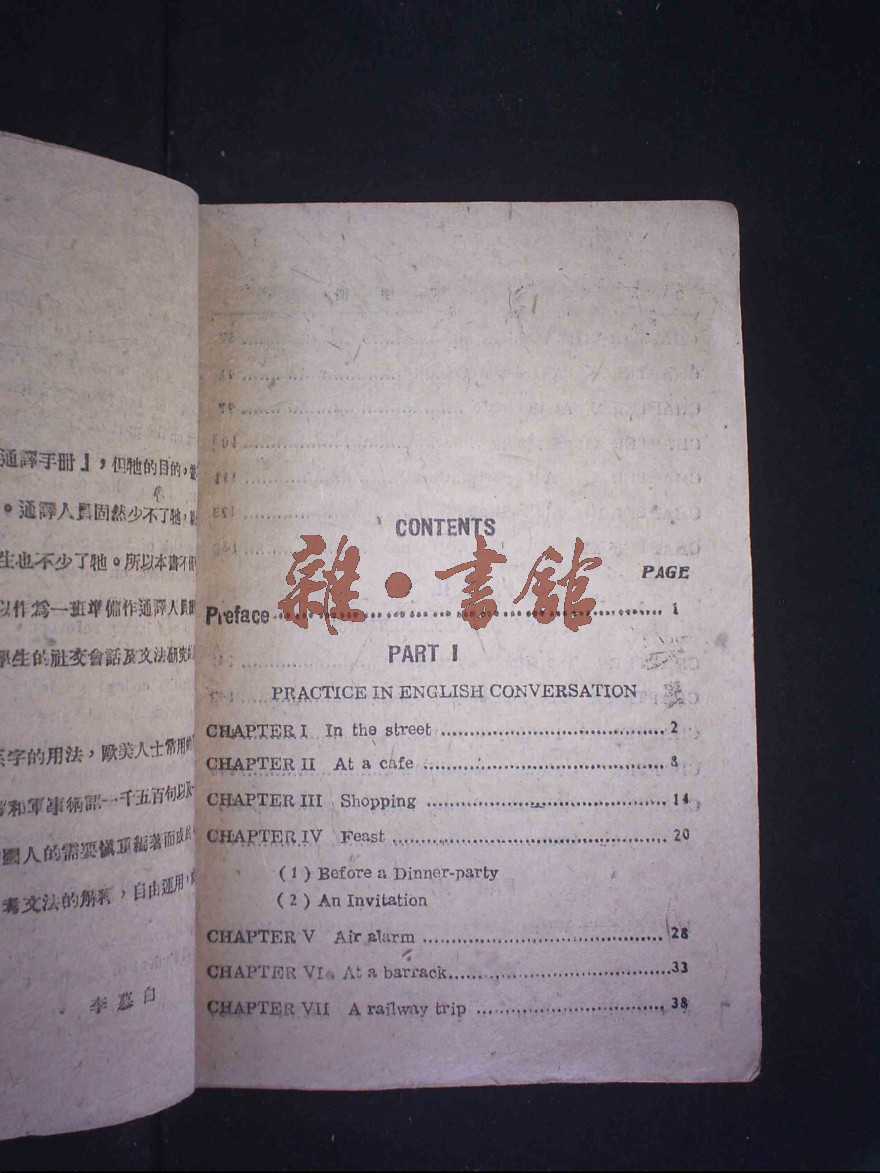 通譯手冊』，但牠的目的，
。通譯人員固然少不了牠，
生也不少了牠。所以本書不
以作爲一班準備作通譯人員
學生的社交會話及文法研究
字的用法，歐美人士常用的
和軍事術語一千五百句以
國人的需要愼重編著而成
考文法的解釋，自由運用，
李慕白
雜・書館
CONTENTS
PAGE
Preface 1
PART I
PRACTICE IN ENGLISH CONVERSATION
CHAPTER I In the street 2
CHAPTER II At a cafe 8
CHAPTER III Shopping 14
CHAPTER IV Feast 20
(1) Before a Dinner-party
(2) An Invitation
CHAPTER V Air alarm 28
CHAPTER VI At a barrack 33
CHAPTER VII A railway trip 38